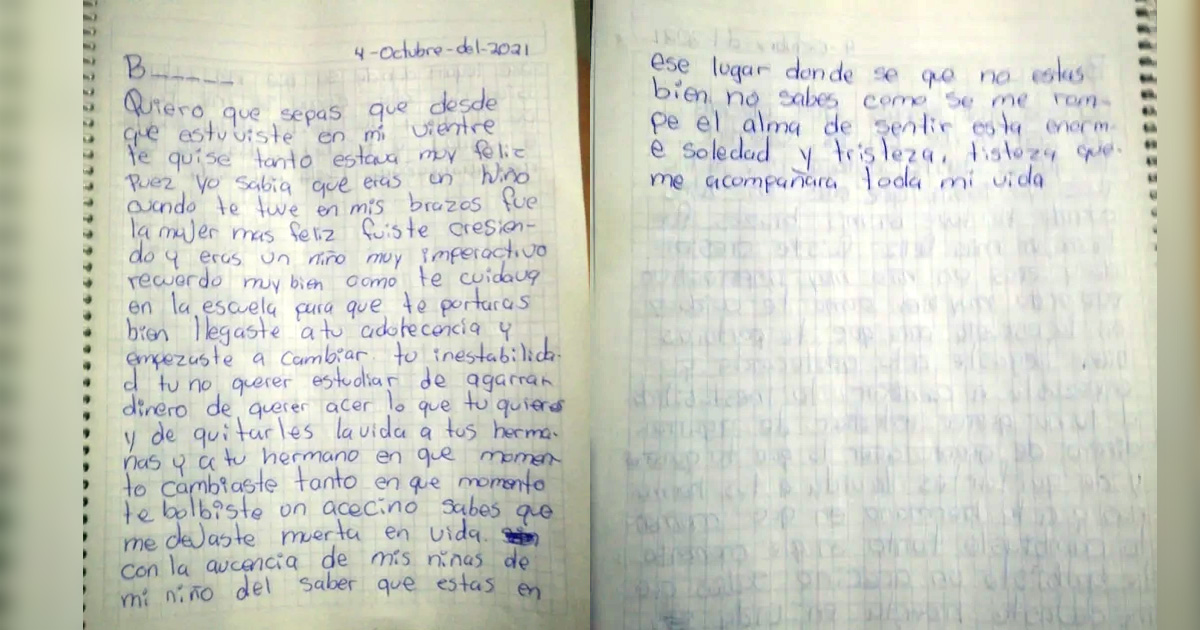 4-Octubre-del-2021
B_____.
Quiero que sepas que desde
que estuviste en mi vientre
te quise tanto estava muy feliz
Puez yo sabia que eras un Niño
cuando te tuve en mis brazos fue
la mujer mas feliz fuiste cresien-
do y eras un niño muy imperactivo
recuerdo muy bien como te cuidava
en la escuela para que te portaras
bien llegaste a tu adolecencia y
empezaste a cambiar tu inestabilida-
d tu no querer estudiar de agarrar
dinero de querer acer lo que tu quieres
y de quitarles la vida a tus herma-
nas y a tu hermano en que momen
to cambiaste tanto en que momento
te bolbiste un acecino sabes que
me dejaste muerta en vida.
con la aucencia de mis niñas de
mi niño del saber que estas en
ese lugar donde se que no estas
bien no sabes como se me rom-
pe el alma de sentir esta enorm-
e soledad y tristeza, tisteza que
me acompañara toda mi vida